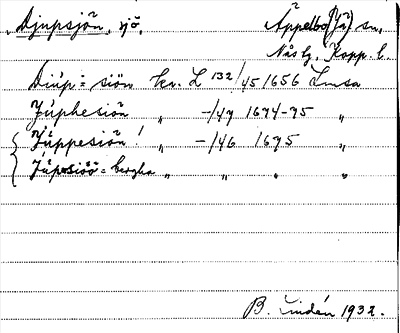 Djupsjön, sjö, Äppelbo (Jä) sn,
Nås lg, Kopp. l.
Diúp=siön kv. L 132/45 1656 Lmsa
Júphesiön " -/49 1694-95 "
Júppesiön! " -/46 1695 "
Júpesiöö=bergha " " " "
B. Lindén 1932.